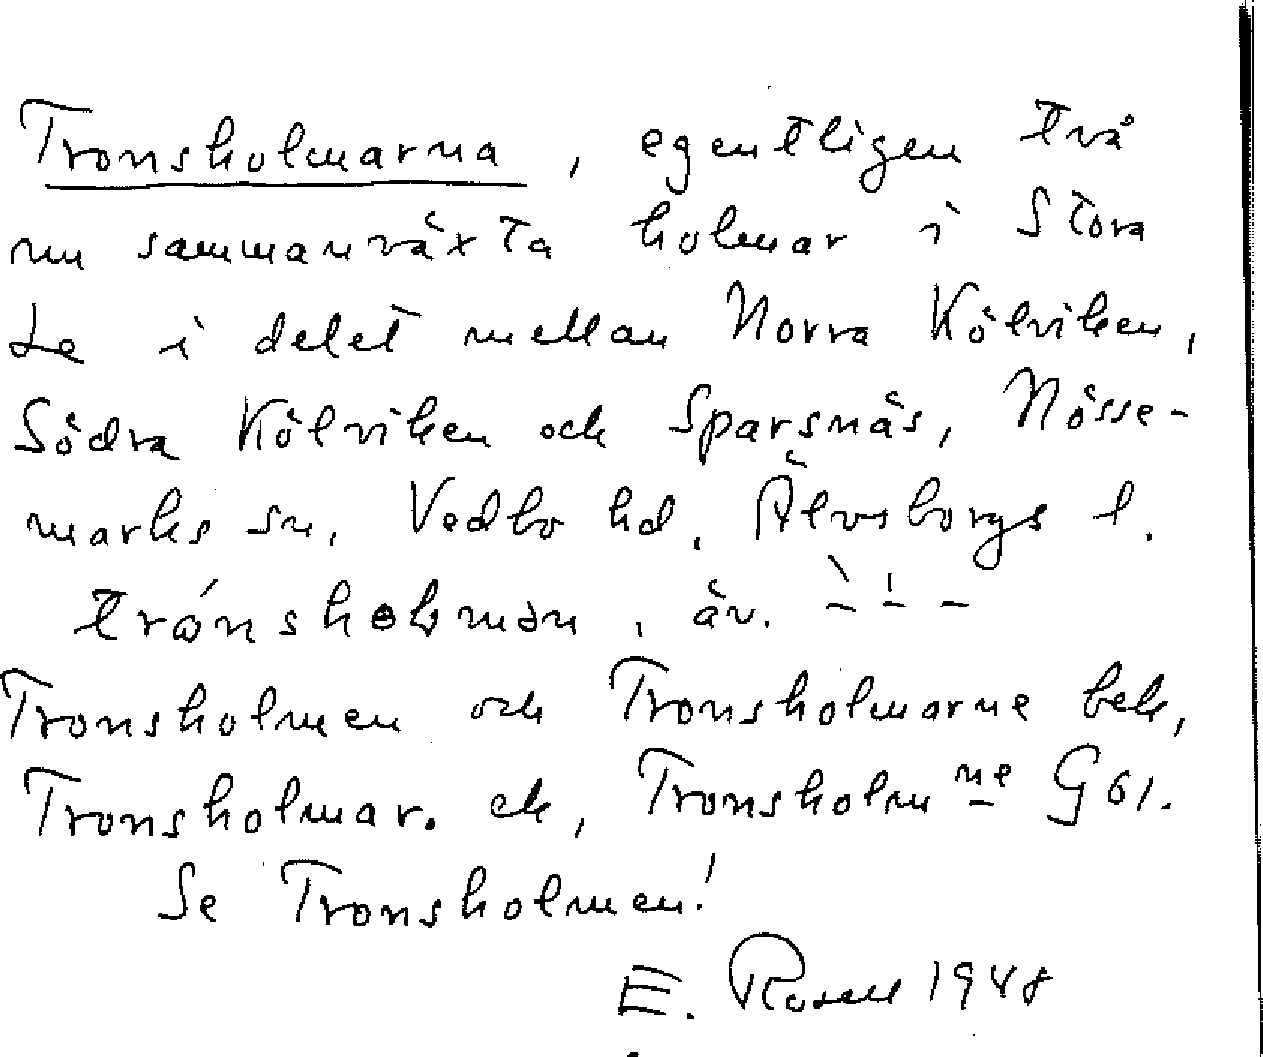 Tronsholmarna, egentligen två
nu sammanväxta holmar i Stora
Le i delet mellan Norra Kölviken,
Södra Kölviken och Sparsnäs, Nösse-
marks sn, Vedbo hd, Älvsborgs l.
trónshólmən, äv. – – –
Tronsholmen och Tronsholmarne bek,
Tronsholmar. ek, Tronsholmne G61.
Se Tronsholmen!
E. Rosell 1948